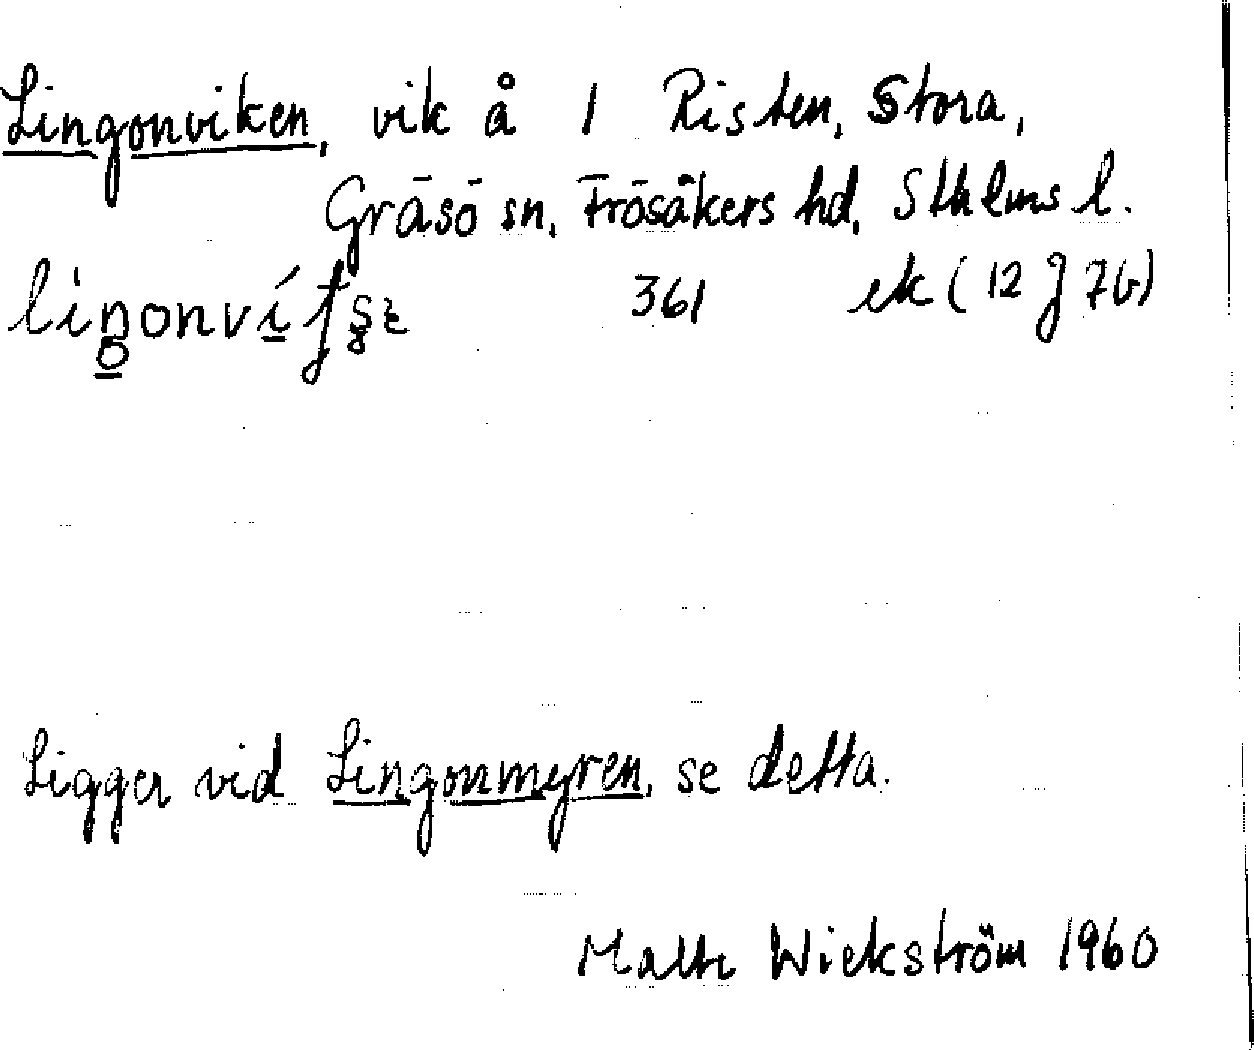 Lingonviken, vik å 1 Risten, Stora,
Gräsö sn, Frösåkers hd, Sthlms l.
361 ek (12 J 7b)
Ligger vid Lingonmyren, se detta.
Malte Wickström 1960